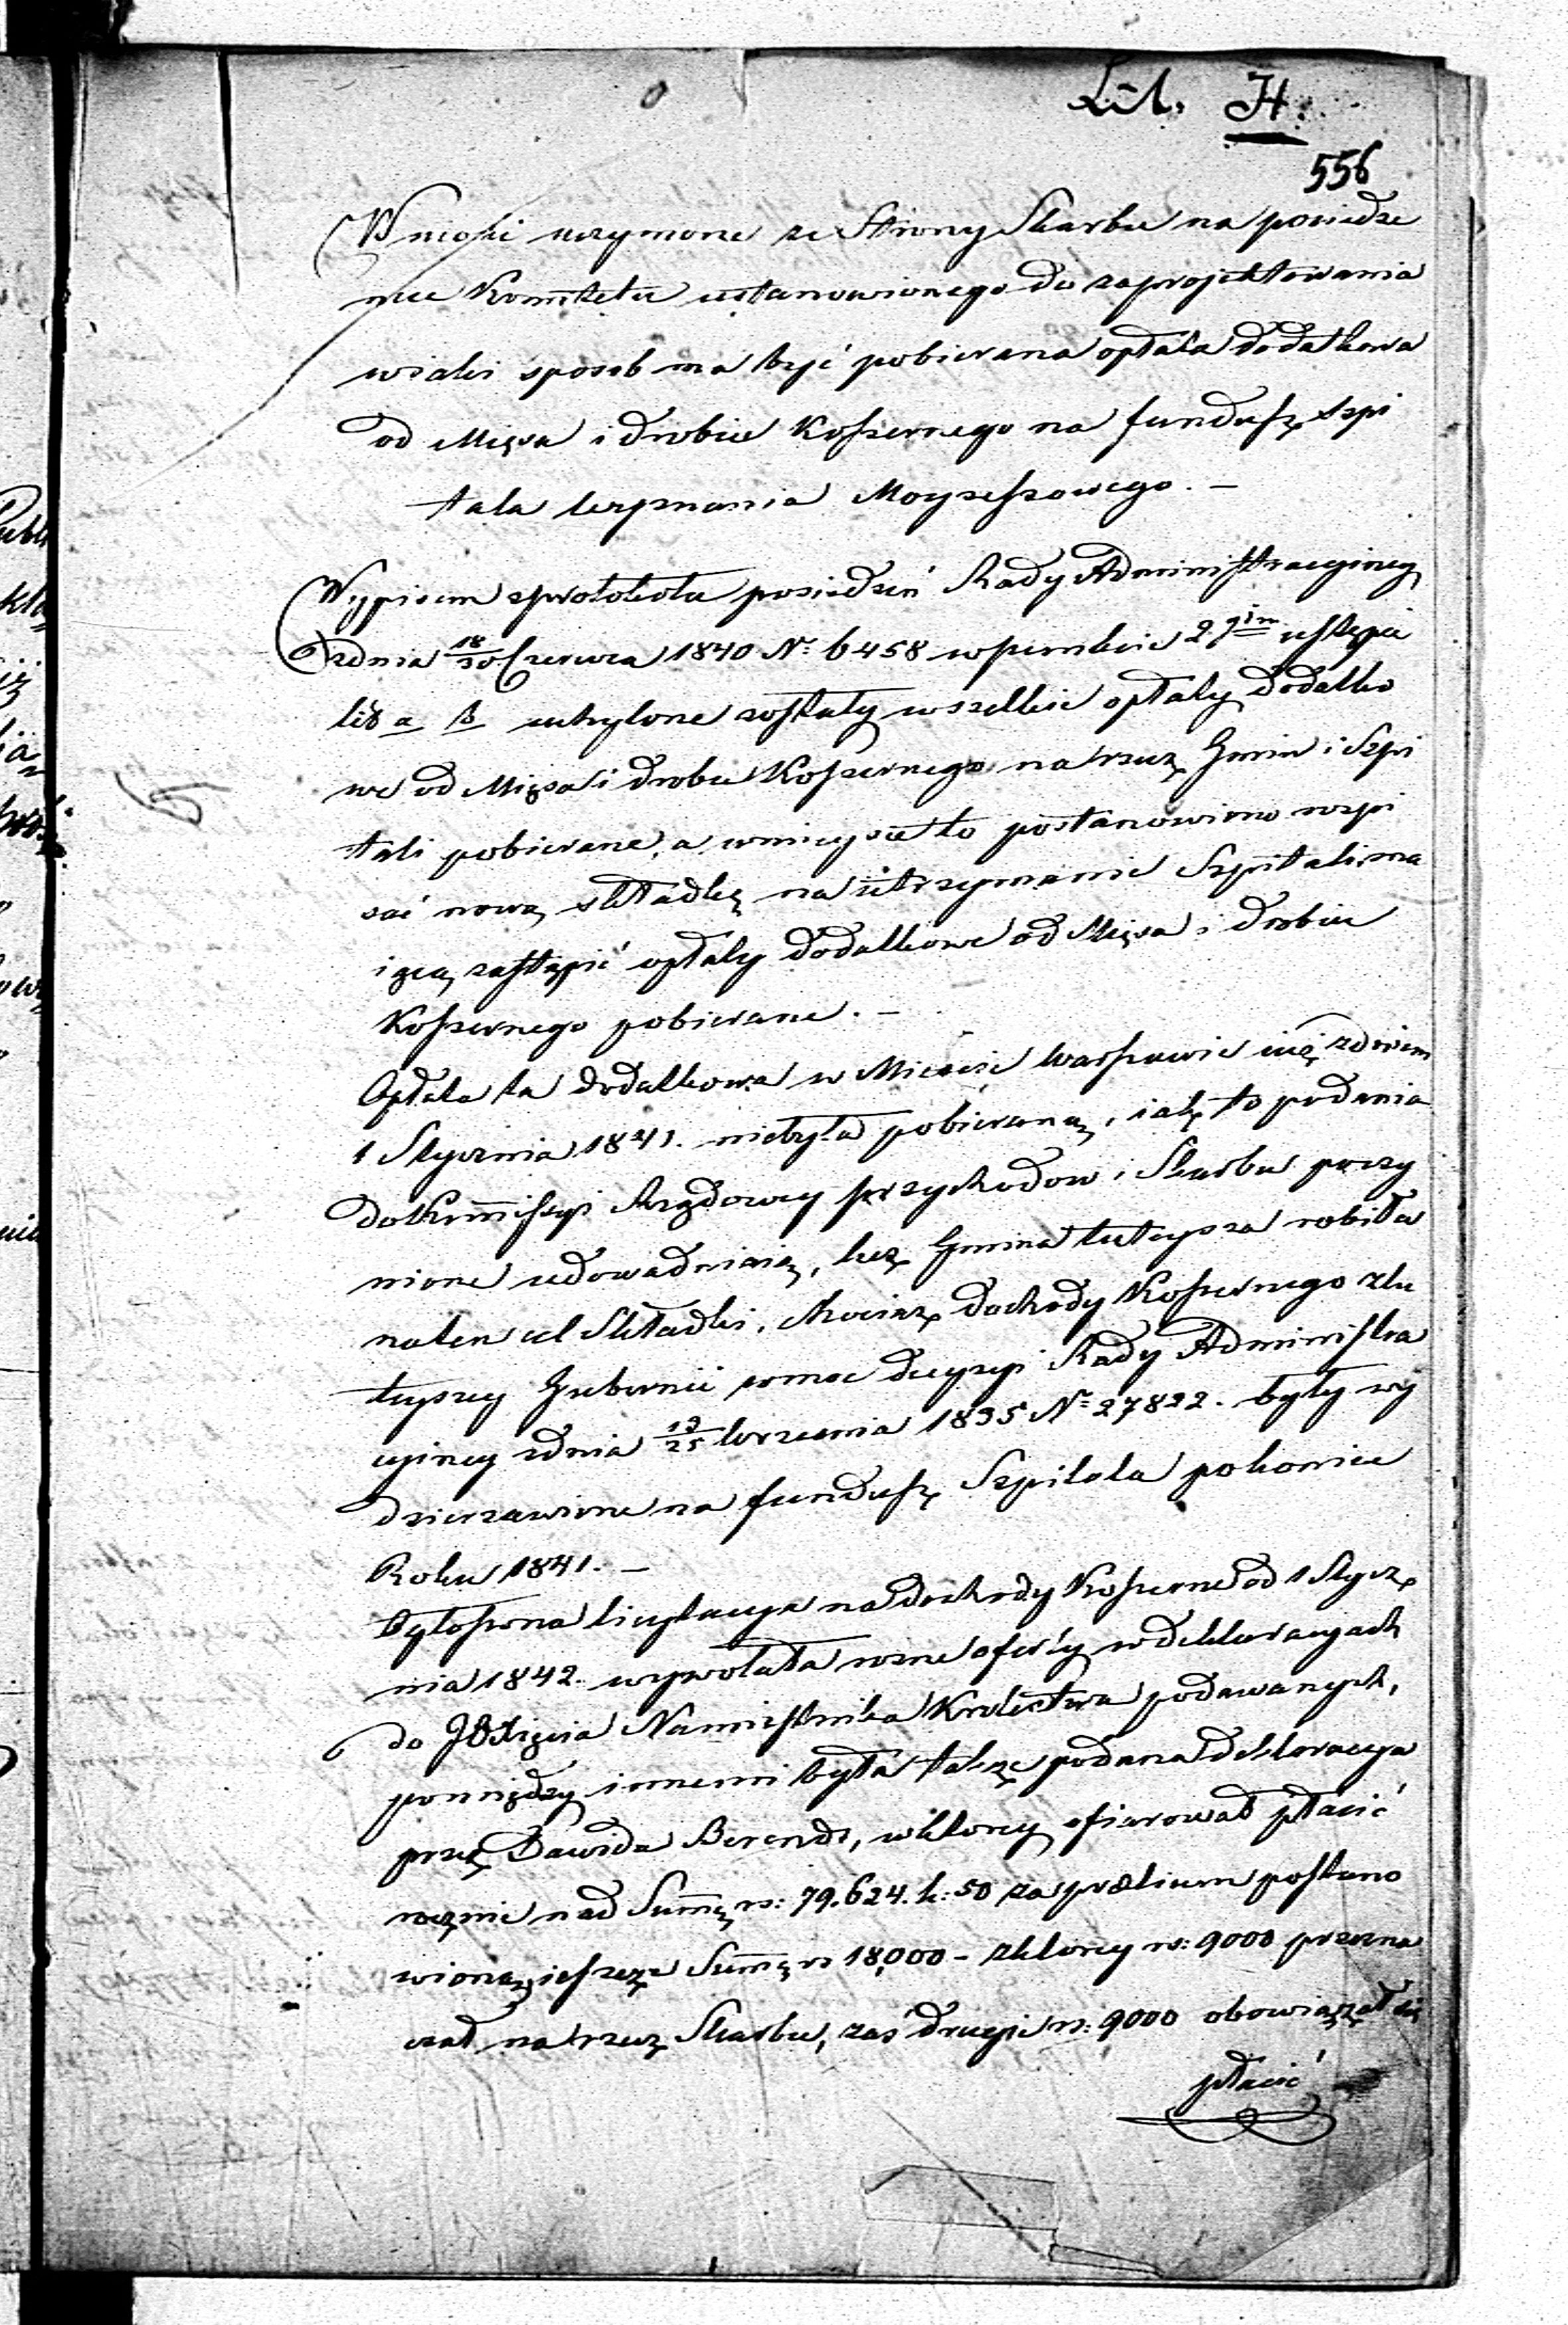 Lit. H.
556
Wnioski uczynione ze Strony Skarbu na posiedze
niu Komitetu ustanowionego do zaprojektowania
wiaki sposob ma być pobierana opłata dodatkowa
od Mięsa i drobiu Koszernego na fundusz Szpi
tala wyznania Moyżeszowego. –
Wypisem zprotokołu posiedzeń Rady Administracyiney
zdnia 18/30 Czerwca 1840 Nr 6458 wpunkcie 2gim ustępie
lit a b uchylone zostały wszelkie opłaty dodatko
we od Mięsa i drobiu Koszernego na rzecz Gmin i Szpi
tali pobierane, a wmieysce to postanowiono rozpi
sać nową składkę na utrzymanie Szpitali ma
iącą zastąpić opłaty dodatkowe od Mięsa i drobiu
Koszernego pobierane. –
Opłata ta dodatkowa w Mieście Warszawie iuż zdniem
1 Stycznia 1841. niebyła pobieraną, iak to podania
do Kommissyi Rządowey Przychodow i Skarbu poczy
nione udowadniaią, lecz Gmina tuteysza robiła
naten cel Składki, chociaż dochody Koszernego ztu
teyszey Gubernii wmoc decyzyi Rady Administra
cyiney zdnia 13/25 Września 1835 Nr 27822. były wy
dzierzawione na fundusz Szpitala pokoniec
Roku 1841. –
Ogłoszona licytacya na dochody Koszerne od 1 Stycz
nia 1842. wywołała rozne oferty wdeklaracyach
do JO Xięcia Namiestnika Krolestwa podawanych,
pomiędzy innemi była także podana deklaracya
przez Dawida Berends, wktorey ofiarował płacić
rocznie nad Summę rs: 79.624. k: 50 za praetium postano
wioną, ieszcze Summę rs 18,000 – zktorey rs: 9000 przezna
czał na rzecz Skarbu, zaś drugie rs: 9000 obowiązał się
płacić